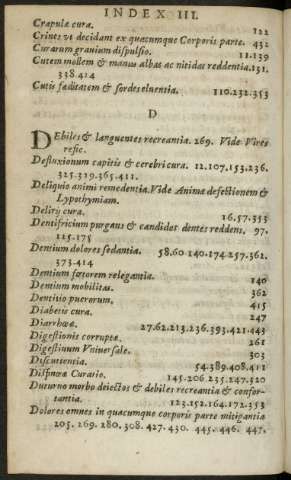 INDEX III.
Crapulæ cura. 122
Crines vt decidant ex quacumque Corporis parte. 432
Curarum grauium dispulsio. 11.139
Cutem mollem & manus albas ac nitidas reddentia. 131.
338.414
Cutis fæditatem & sordes eluentia. 110.232.353
D
DEbiles & languentes recreantia. 269. Vide Vires
refic.
Defluxionum capitis & cerebri cura. 12.107.153.236.
325.319.365.411.
Deliquio animi remedentia. Vide Animæ defectionem &
Lypothymiam.
Delirij cura. 16.57.353
Dentifricium purgans & candidos dentes reddens. 97.
125.175
Dentium dolores sedantia. 58.60.140.174.257.362.
373.414
Dentium fœtorem relegantia. 140
Dentium mobilitas. 362
Dentitio puerorum. 415
Diabetis cura. 247
Diarrhœæ. 27.62.213.236.393.421.443
Digestionis corruptæ. 261
Digestiuum Vniuersale. 303
Discutientia. 54.389.408.411
Dispnœæ Curatio. 145.206.235.247.320
Diuturno morbo deiectos & debiles recreantia & confor-
tantia. 123.152.164.172.353
Dolores omnes in quacumque corporis parte mitigantia
205. 269. 280. 308. 427. 430. 445. 446. 447.